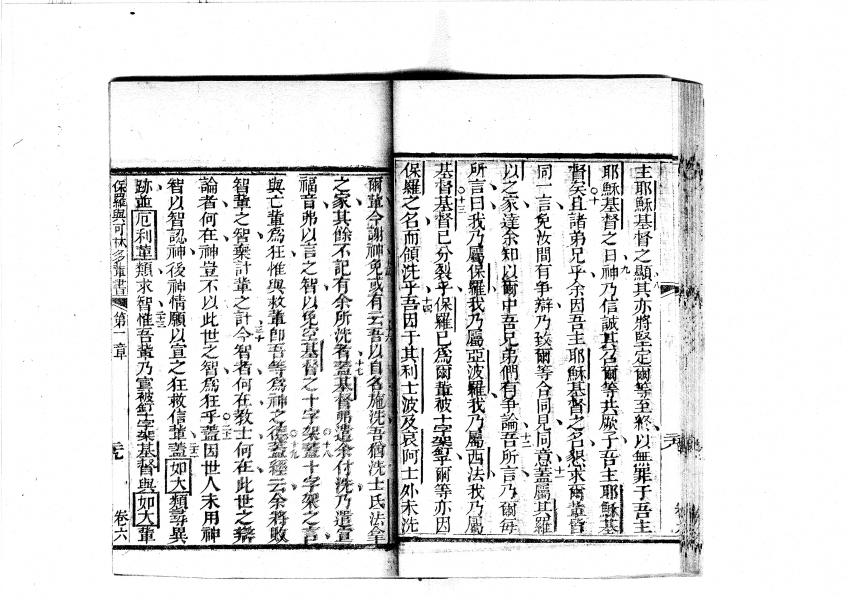 主耶穌基督之顯其亦將堅定爾等至終以無罪于吾主
耶穌基督之日神乃信誠其召爾等共厥子吾主耶穌基
督矣且諸弟兄乎余因吾主耶穌基督之名懇求爾輩皆
同一言免汝間有爭辯乃致爾等合同見同意蓋屬其羅
以之家達余知以爾中吾兄弟們有爭論吾所言乃爾每
所言曰我乃屬保羅我乃屬亞波羅我乃屬西法我乃屬
基督基督已分裂乎保羅已為爾輩被十字架乎爾等亦因
保羅之名而領洗乎吾因于其利士波及哀阿士外未洗
爾輩今謝神免或有云吾以自名施洗吾猶洗士氏法拿
之家其餘不記有余所洗者蓋基督弗遣余付洗乃遣宣
福音弗以言之智以免至基督之十字架蓋十字架之言
與亡輩為狂惟與救輩即吾等為神之德蓋經云余將敗
智輩之智棄計輩之計今智者何在教士何在此世之辯
論者何在神豈不以此世之智為狂乎蓋因世人未用神
智以智認神後神情願以宣之狂救信輩蓋如大類尋異
跡並厄利輩類求智惟吾輩乃宣被釘十字架基督與如大輩
保羅與可林多輩書 第一章 卷六